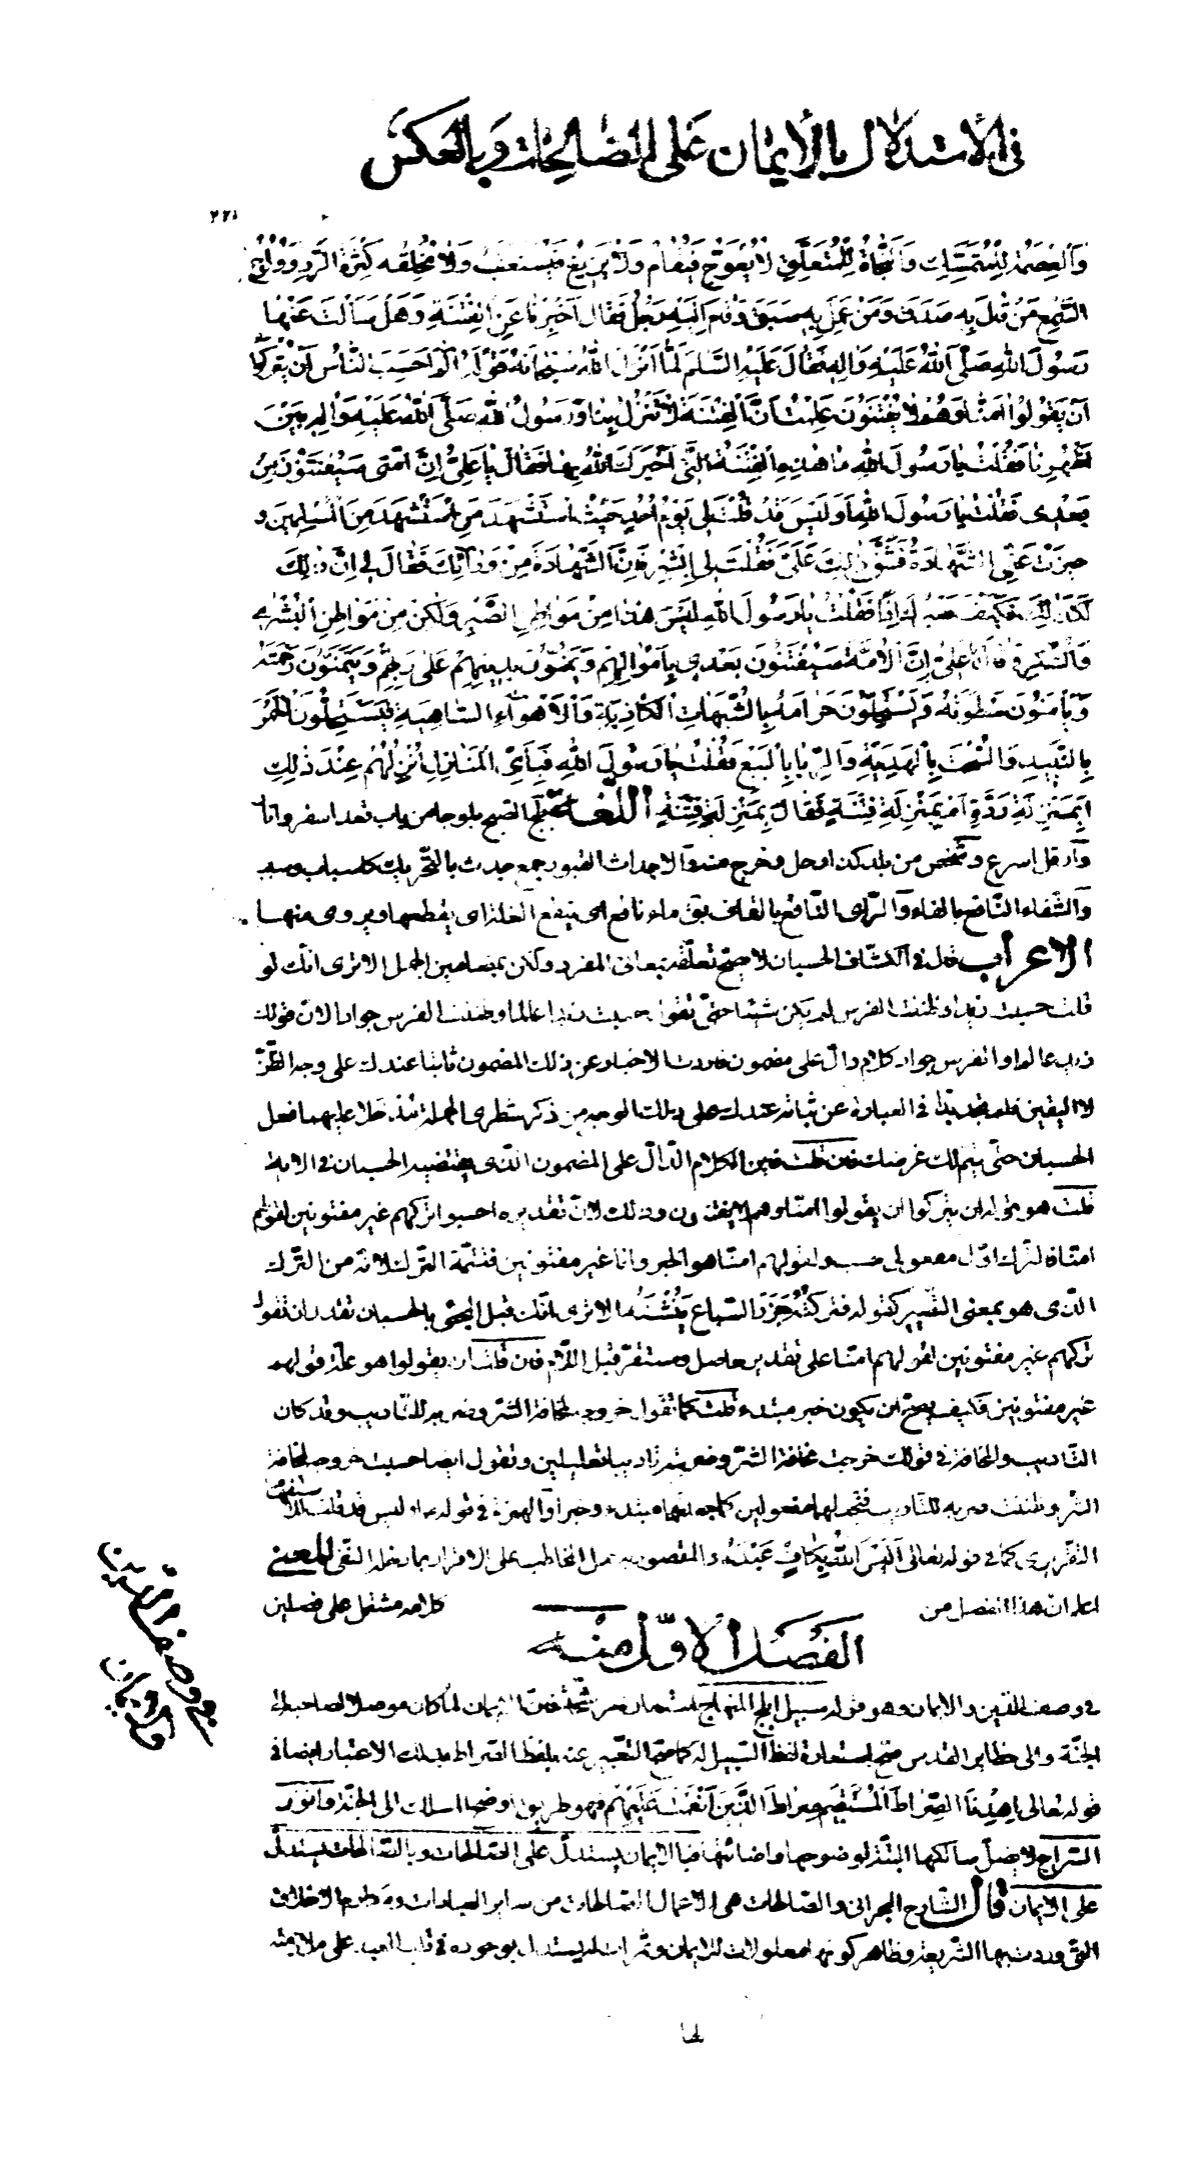 في الاستدلال بالايمان على الصالحات وبالعكس
٢٢١
وَالْعِصْمَةُ لِلْمُتَمَسِّكِ وَالنَّجاةُ لِلْمُتَعَلِّقِ لا يَعْوَجُّ فَيُقامَ وَلا يَزيغُ فَيُسْتَعْتَبَ وَلا تُخْلِقُه كَثْرَةُ الرَّدِّ وَوُلُوجُ
السَّمْعِ مَنْ قالَ بِه صَدَقَ وَمَنْ عَمِلَ بِه سَبَقَ وَقامَ اِلَيْهِ رَجُلٌ فَقالَ اَخْبِرْنا عَنِ الْفِتْنَةِ وَهَلْ سَاَلْتَ عَنْها
رَسُولَ اللهِ صَلَّى اللهُ عَلَيْهِ وَالِهِ فَقالَ عَلَيْهِ السَّلام لَمّا اَنْزَلَ اللهُ سُبْحانَهُ قَوْلَهُ الم اَحَسِبَ النّاسُ اَنْ يُتْرَكُوا
اَنْ يَقُولُوا امَنّا وَهُمْ لا يُفْتَنُونَ عَلِمْتُ اَنَّ الْفِتْنَةَ لا تَنْزِلُ بِنا وَرَسُولُ اللهِ صَلَّى اللهُ عَلَيْهِ وَالِهِ بَيْنَ
اَظْهُرِنا فَقُلْتُ يا رَسُولَ اللهِ ما هذِهِ الْفِتْنَةُ الَّتي اَخْبَرَكَ اللهُ بِها فَقالَ يا عَلِيُّ اِنَّ اُمَّتي سَيُفْتَنُونَ مِنْ
بَعْدي فَقُلْتُ يا رَسُولَ اللهِ اَوَلَيْسَ قَدْ قُلْتَ لي يَوْمَ اُحُدٍ حَيْثُ اسْتُشْهِدَ مَنِ اسْتُشْهِدَ مِنَ الْمُسْلِمينَ وَ
حيزَتْ عَنِّي الشَّهادَةُ فَشَقَّ ذلِكَ عَلَيَّ فَقُلْتَ لي اَبْشِرْ فَاِنَّ الشَّهادَةَ مِنْ وَرائِكَ فَقالَ لي اِنَّ ذلِكَ
لَكَذلِكَ فَكَيْفَ صَبْرُكَ اِذًا فَقُلْتُ يا رَسُولَ اللهِ لَيْسَ هذا مِنْ مَواطِنِ الصَّبْرِ وَلكِنْ مِنْ مَواطِنِ الْبُشْرى
وَالشُّكْرِ فَقالَ يا عَلِيُّ اِنَّ الْاُمَّةَ سَيُفْتَنُونَ بَعْدي بِاَمْوالِهِمْ وَيَمُنُّونَ بِدينِهِمْ عَلى رَبِّهِمْ وَيَتَمَنَّوْنَ رَحْمَتَهُ
وَيَاْمَنُونَ سَطْوَتَهُ وَيَسْتَحِلُّونَ حَرامَهُ بِالشُّبَهاتِ الْكاذِبَةِ وَالْاَهْواءِ السّاهِيَةِ فَيَسْتَحِلُّونَ الْخَمْرَ
بِالنَّبيذِ وَالسُّحْتَ بِالْهَدِيَّةِ وَالرِّبا بِالْبَيْعِ فَقُلْتُ يا رَسُولَ اللهِ فَبِاَيِّ الْمَنازِلِ اُنْزِلُهُمْ عِنْدَ ذلِكَ
اَبِمَنْزِلَةِ رَدَّةٍ اَمْ بِمَنْزِلَةِ فِتْنَةٍ فَقالَ بِمَنْزِلَةِ فِتْنَةٍ اللغة بلج الصبح بلوجا من باب قعد اسفر وانار
وارقل اسرع وشخص من بلد كذا رحل وخرج منه والاجداث القبور جمع جدث بالتحريك كاسباب وسبب
والشفاء النافع بالفاء والرّى الناقع بالقاف يق ماء ناقع اى ينقع الغلة اى يقطعها ويروى منها
الاعراب قال في الكشاف الحسبان لا يصحّ تعلّقه بمعانى المفرد ولكن بمضامين الجمل الا ترى انّك لو
قلت حسبت زيدا وظننت الفرس لم يكن شيئا حتّى تقول حسبت زيدا عالما وظننت الفرس جوادا لانّ قولك
زيد عالم او الفرس جواد كلام دالّ على مضمون فاردت الاخبار عن ذلك المضمون ثابتا عندك على وجه الظّنّ
لا اليقين فلم تجد بدّا في العبارة عن ثباته عندك على ذلك الوجه من ذكر شطرى الجملة مدخلا عليهما فعل
الحسبان حتّى يتم لك غرضك فان قلت فاين الكلام الدّالّ على المضمون الّذى يقتضيه الحسبان في الاية
قلت هو في قوله ان يتركوا ان يقولوا امنّا وهم لا يفتنون وذلك لانّ تقديره احسبوا تركهم غير مفتونين لقولهم
امنّا فالترك اوّل مفعولى حسب ولقولهم امنّا هو الخبر وامّا غير مفتونين فتتمّة الترك لانّه من الترك
الّذى هو بمعنى التّصيير كقوله فتركته جَزَرَ السّباع يَنُشْنَهُ الا ترى انّك قبل المجىء بالحسبان تقدر ان تقول
تركهم غير مفتونين لقولهم امنّا على تقدير حاصل ومستقرّ قبل اللّام فان قلت ان يقولوا هو علّة تركهم
غير مفتونين فكيف يصحّ ان يكون خبر مبتدء قلت كما تقول خروجه لمخافة الشرّ وضربه للتّاديب وقد كان
التّاديب والمخافة في قولك خرجت مخافة الشرّ وضربته تاديبا تعليلين وتقول ايضا حسبت خروجه لمخافة
الشرّ وظننت ضربه للتاديب فتجعلهما مفعولين كما جعلتهما مبتدء وخبرا والهمزة في قوله اوليس قد قلت للاستفهام
التقريرى كما في قوله تعالى اَلَيْسَ اللهُ بِكافٍ عَبْدَهُ والمقصود حمل المخاطب على الاقرار بما دخله النّفى المعنى
اعلم انّ هذا الفصل من كلامه مشتمل على فصلين
الفصل الاوّل منه
في وصف الدّين والايمان
في وصف الدّين والايمان وهو قوله سبيل ابلج المنهاج استعار مرشّحة فانّ الايمان لمّا كان موصلا لصاحبه الى
الجنّة والى حظاير القدس صحّ استعارة لفظ السّبيل له كما صحّ التّعبير عنه بلفظ الصّراط بذلك الاعتبار ايضا في
قوله تعالى اِهْدِنَا الصِّراطَ الْمُسْتَقيمَ صِراطَ الَّذينَ اَنْعَمْتَ عَلَيْهِمْ فهو طريق اوضح المسالك الى الجنّة وانور
السّراج لا يضلّ سالكها البتّة لوضوحها واضائتها فبالايمان يستدلّ على الصّالحات وبالصّالحات يستدلّ
على الايمان قال الشّارح البحرانى والصّالحات هى الاعمال الصّالحات من ساير العبادات ومكارم الاخلاق
الّتى وردت بها الشّريعة وظاهر كونها معلولات للايمان وثمرات له يستدل بوجوده في قلب العبد على ملازمته
لها